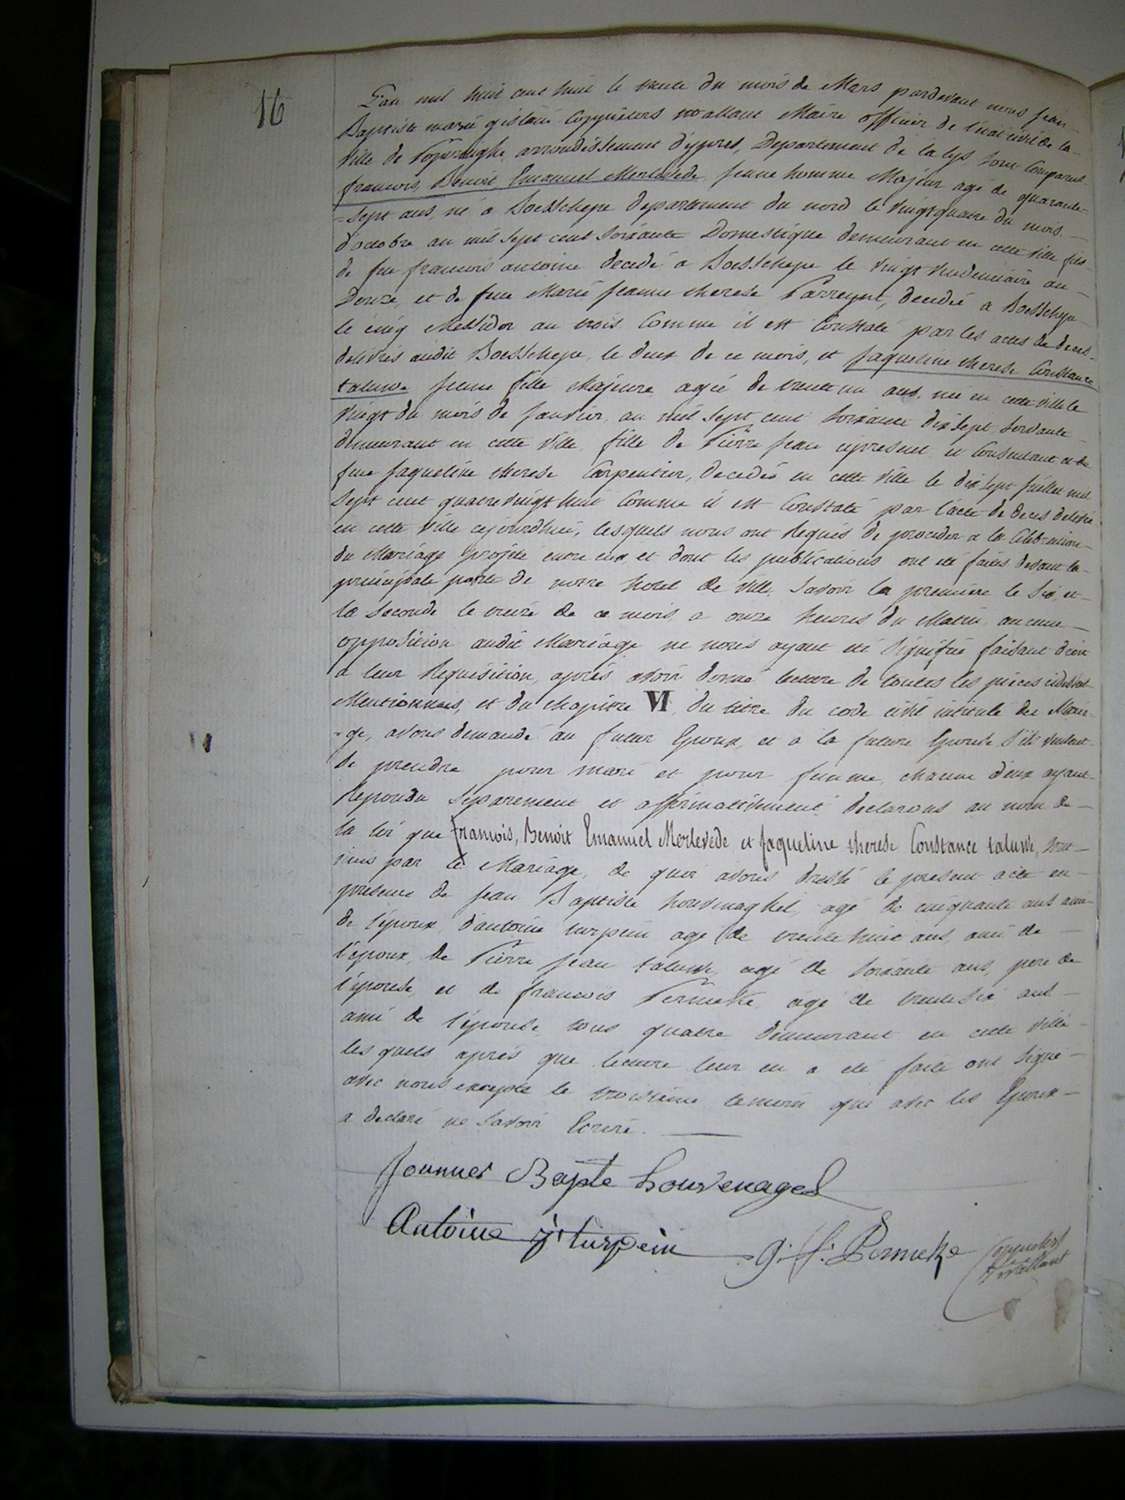 16
L'an mil huit cent huit le trente du mois de Mars pardevant nous Jean-
Baptiste marie gislain Coppieters wallant Maire officier de l'état civil de la-
Ville de Poperinghe, arrondissement d'ypres, Departement de la lys sont Comparus
francois, Benoit Emanuel Merlevede jeune homme Majeur agé de quarante-
-sept ans, né a Boesschepe departement du nord le vingtquatre du mois-
d'octobre an mil sept cent soixante Domestique demeurant en cette ville fils
de feu francois antoine decedé a Boesschepe le vingt vendemiaire an-
Douze et de feue Marie Jeanne therese Parreyn, decedée a Boesschepe
le cinq Messidor an trois Comme il est Constaté par les actes de deces-
delivrés audit Boesschepe le deux de ce mois, et Jaqueline therese Constance
taluwe jeune fille Majeure agée de trente un ans, née en cette ville le
vingt du mois de Janvier an mil sept cent soixante dix sept servante
demeurant en cette ville fille de Pierre Jean cipresent et Consentant et de
feue Jaqueline therese Carpentier, decedée en cette ville le dix sept juillet mil
sept cent quatrevingt huit Comme il est Constaté par l'acte de deces delivré
en cette ville cejourdhui, lesquels nous ont Requis de proceder a la Celebration-
du Mariage projeté entre eux et dont les publications ont été faites devant la-
principale porte de notre hotel de ville, Savoir la premiere le Six, et-
la seconde le treize de ce mois a onze heures du Matin, aucune-
opposition audit Mariage ne nous ayant été signifiée faisant droit
a leur Requisition, après avoir donné lecture de toutes les pieces cidessus-
Mentionnées, et du chapitre VI du titre du code civil intitulé du Maria-
-ge, avons demandé au futur Epoux et a la future Epouse s'ils veulent-
se prendre pour mari et pour femme, chacun d'eux ayant-
Repondu separement et affirmativement declarons au nom de-
la loi que francois, Benoit Emanuel Merlevede et Jaqueline therese Constance taluwe, sont-
unis par le Mariage, de quoi avons dressé le present acte en-
presence de Jean Baptiste houvenaghel, agé de cinquante ans ami-
de l'époux, d'antoine turpein agé de trente huit ans, ami de-
l'époux, de Pierre Jean taluwe, agé de soixante ans, pere de
l'épouse, et de francois Pernecke agé de trente six ans-
ami de l'épouse, tous quatre demeurant en cette ville-
lesquels après que lecture leur en a été faite ont signé-
avec nous excepté le troisieme temoin qui avec les Epoux-
a declaré ne savoir Ecrire.
Joannes Bapte houvenagel
Antoine j turpein g: f: Pernicke Coppieters
wallant